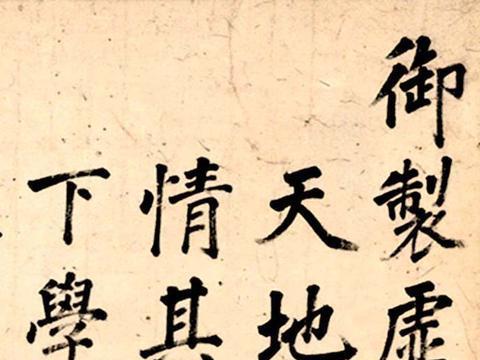 御製虛
天地
情其
下學